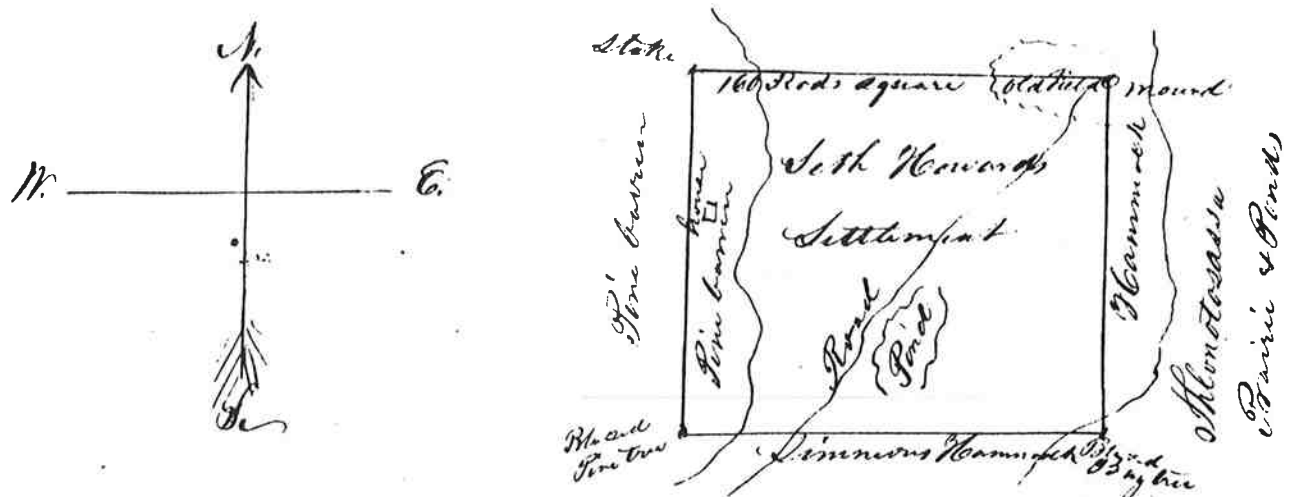 N.
W.
E.
S.
Stake
160 Rods square
old field
mound
Pine barren
house
Pine barren
Seth Howards
Settlement
Road
Pond
Hammock
Thlonotosassa
Prairie & Ponds
Blazed
Pine tree
Simmons Hammock
Blazed
Bay tree